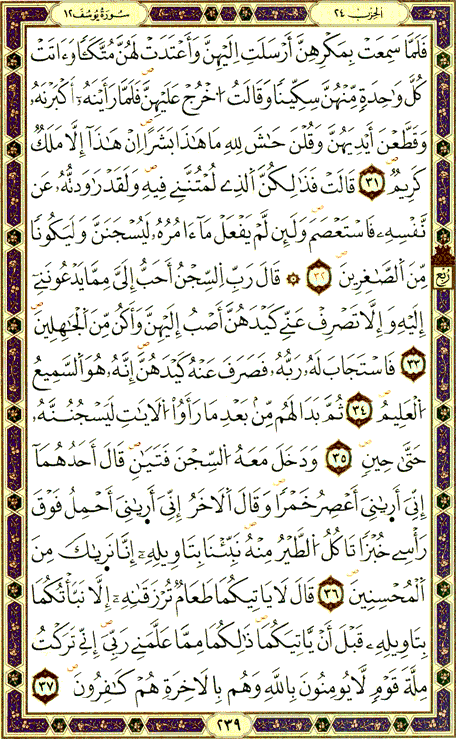 الحزب ٢٤
سورة يوسف ١٢
فَلَمَّا سَمِعَتْ بِمَكْرِهِنَّ أَرْسَلَتِ اِلَيْهِنَّ وَأَعْتَدَتْ لَهُنَّ مُتَّكَـٔاً وَءَاتَتْ
كُلَّ وَٰحِدَةٍ مِّنْهُنَّ سِكِّيناً وَقَالَتُ اُخْرُجْ عَلَيْهِنَّ فَلَمَّا رَأَيْنَهُۥٓ أَكْبَرْنَهُۥ
وَقَطَّعْنَ أَيْدِيَهُنَّ وَقُلْنَ حَٰشَ لِلهِ مَا هَٰذَا بَشَراً اِنْ هَٰذَآ إِلَّا مَلَكٌ
كَرِيمٌ ٣١ قَالَتْ فَذَٰلِكُنَّ اَلذِے لُمْتُنَّنِے فِيهِ وَلَقَدْ رَٰوَدتُّهُۥ عَن
نَّفْسِهِۦ فَاسْتَعْصَمَ وَلَئِن لَّمْ يَفْعَلْ مَآ ءَامُرُهُۥ لَيُسْجَنَنَّ وَلَيَكُوناً
مِّنَ اَلصَّٰغِرِينَ ٣٢ ۞ قَالَ رَبِّ اِلسِّجْنُ أَحَبُّ إِلَيَّ مِمَّا يَدْعُونَنِےٓ
إِلَيْهِ وَإِلَّا تَصْرِفْ عَنِّے كَيْدَهُنَّ أَصْبُ إِلَيْهِنَّ وَأَكُن مِّنَ اَلْجَٰهِلِينَ
٣٣ فَاسْتَجَابَ لَهُۥ رَبُّهُۥ فَصَرَفَ عَنْهُ كَيْدَهُنَّ إِنَّهُۥ هُوَ اَلسَّمِيعُ
اُلْعَلِيمُ ٣٤ ثُمَّ بَدَا لَهُم مِّنۢ بَعْدِ مَا رَأَوُاْ اُلَايَٰتِ لَيَسْجُنُنَّهُۥ
حَتَّىٰ حِينٍ ٣٥ وَدَخَلَ مَعَهُ اُلسِّجْنَ فَتَيَٰنِ قَالَ أَحَدُهُمَآ
إِنِّيَ أَرَيٰنِيَ أَعْصِرُ خَمْراً وَقَالَ اَلَاخَرُ إِنِّيَ أَرَيٰنِيَ أَحْمِلُ فَوْقَ
رَأْسِے خُبْزاً تَاكُلُ اُلطَّيْرُ مِنْهُ نَبِّئْنَا بِتَاوِيلِهِۦٓ إِنَّا نَرَيٰكَ مِنَ
اَلْمُحْسِنِينَ ٣٦ قَالَ لَا يَاتِيكُمَا طَعَامٌ تُرْزَقَٰنِهِۦٓ إِلَّا نَبَّأْتُكُمَا
بِتَاوِيلِهِۦ قَبْلَ أَنْ يَّاتِيَكُمَا ذَٰلِكُمَا مِمَّا عَلَّمَنِے رَبِّيَ إِنِّے تَرَكْتُ
مِلَّةَ قَوْمٍ لَّا يُومِنُونَ بِاللَّهِ وَهُم بِالَاخِرَةِ هُمْ كَٰفِرُونَ ٣٧
ربع
٢٣٩